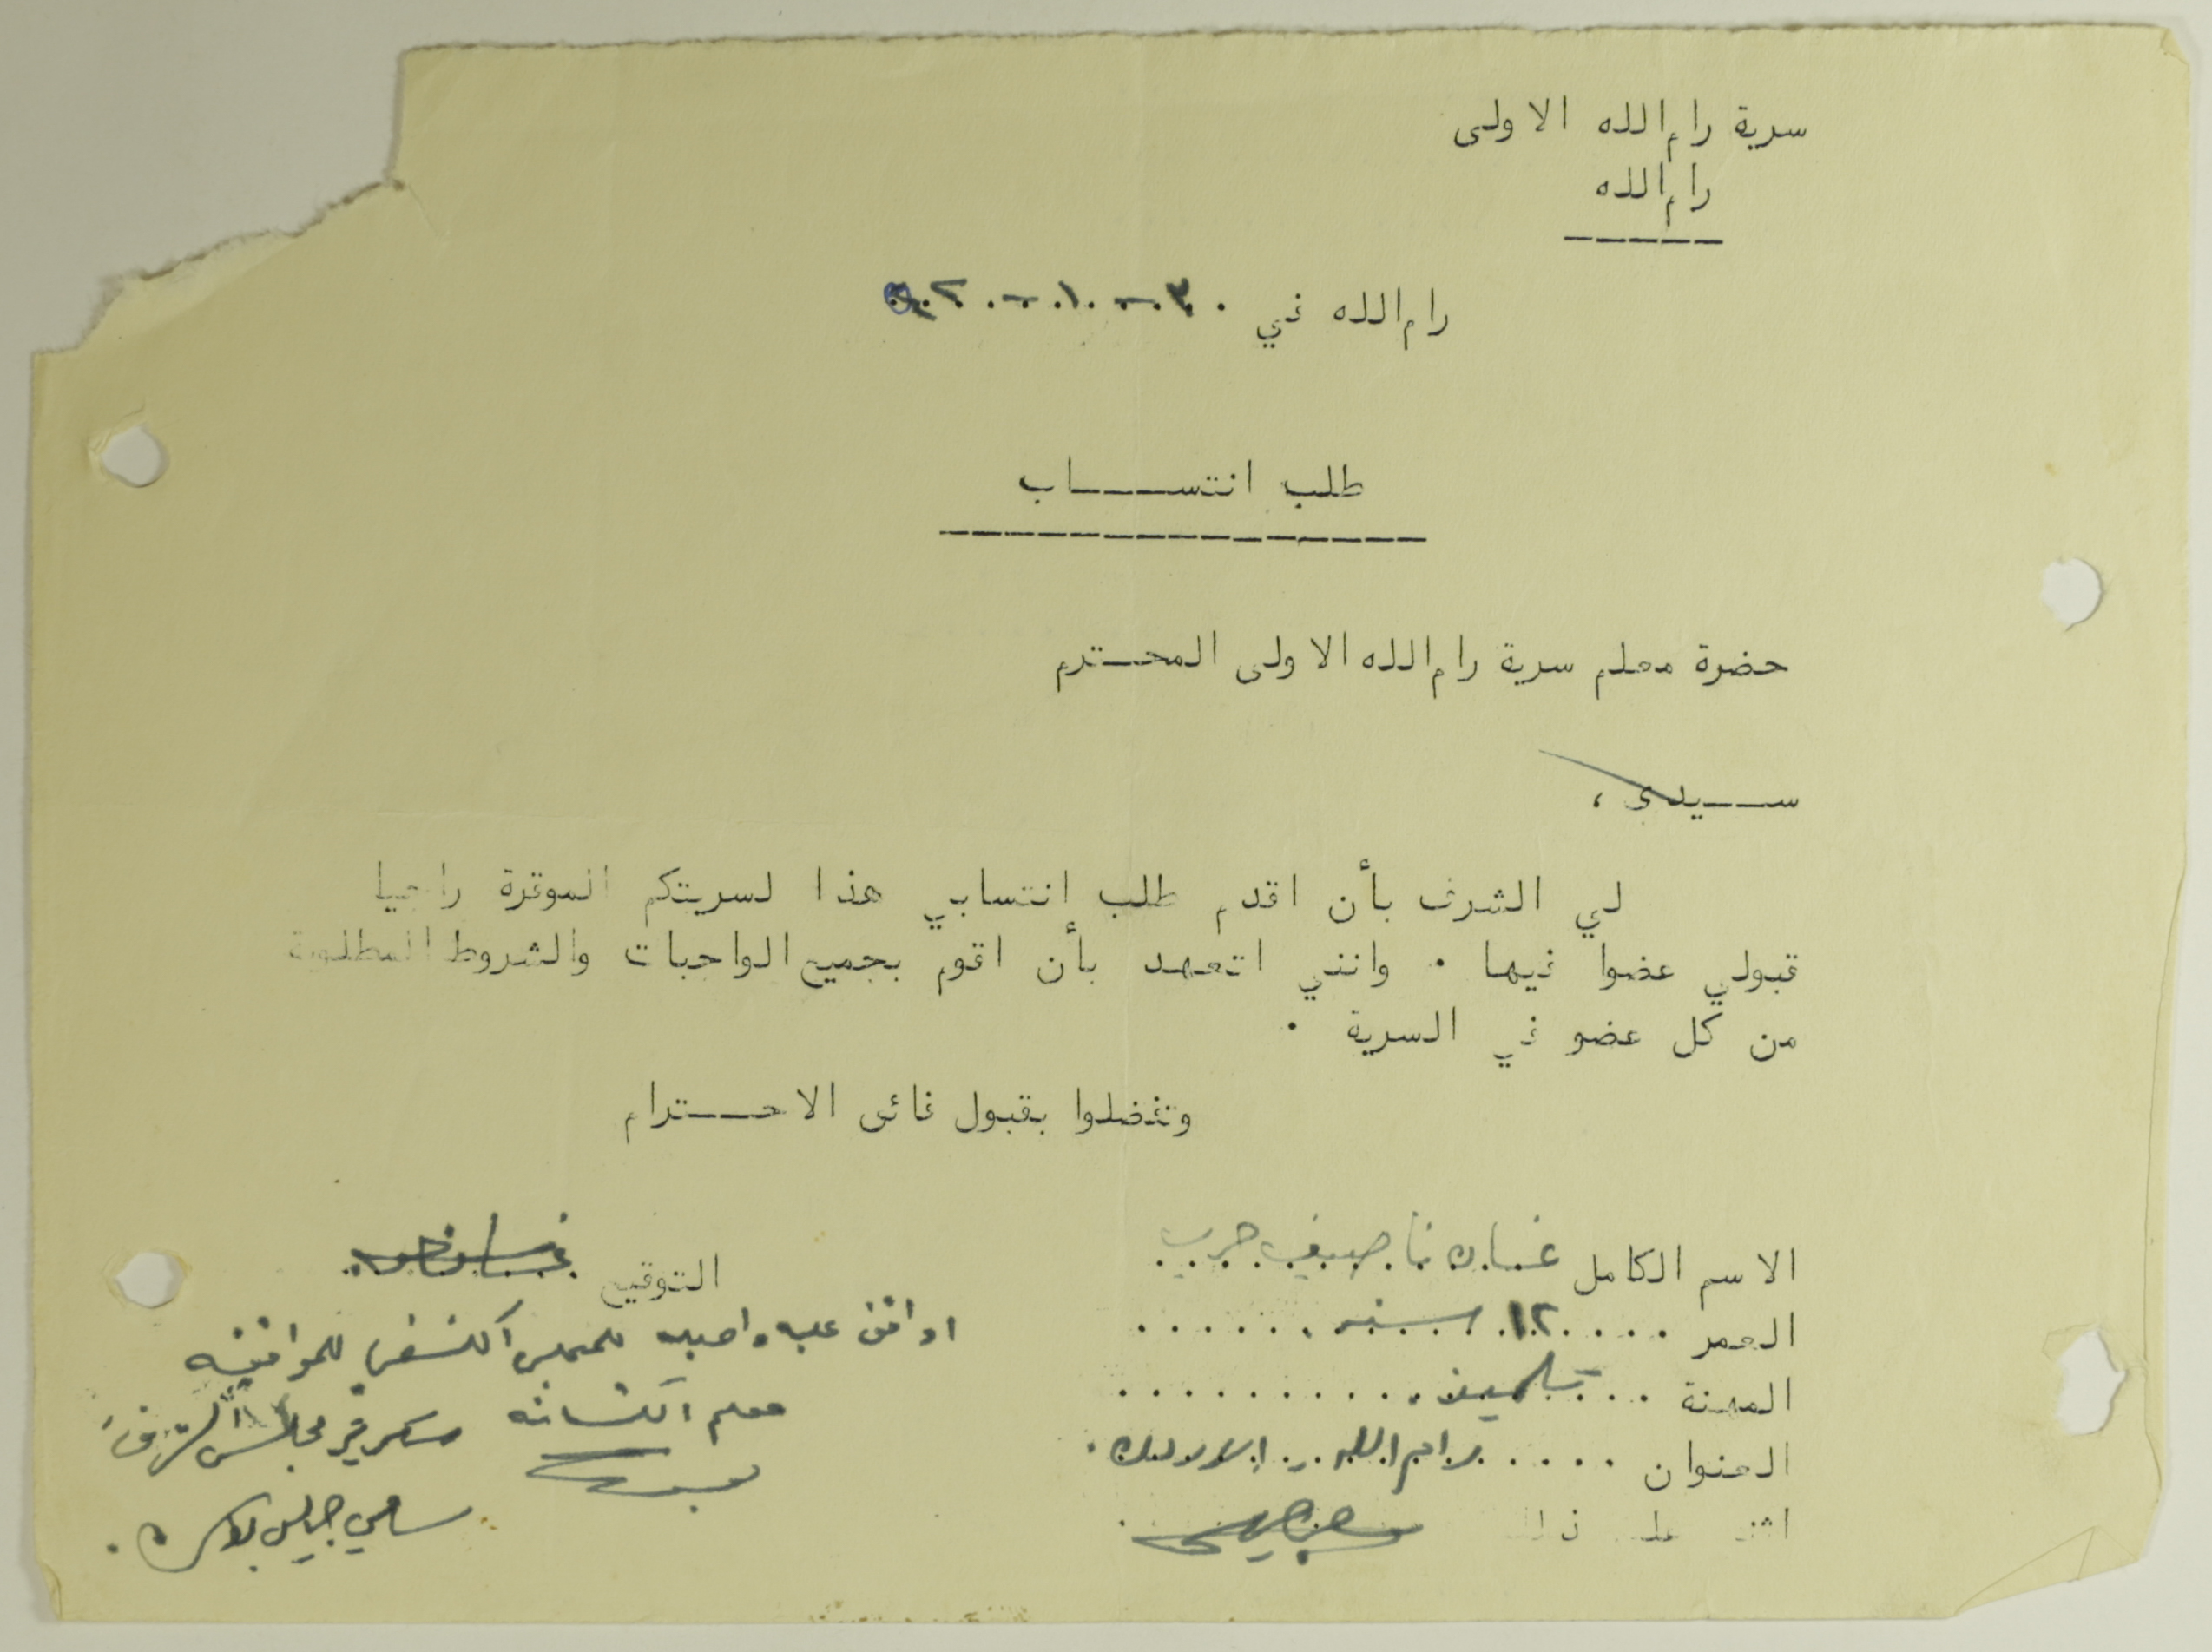 سرية رام الله الاولى
رام الله
رام الله في ٣٠ - ١٠ -
طلب انتساب
حضرة معلم سرية رام الله الاولى المحترم
سيدي ،
لي الشرف بأن اقدم طلب إنتسابي هذا لسريتكم الموقرة راجيا
قبولي عضوا فيها . وانني اتعهد بأن اقوم بجميع الواجبات والشروط المطلوبة
من كل عضو في السرية .
وتفضلوا بقبول فائق الاحترام
الاسم الكامل غسان ناصيف حرب
التوقيع
العمر ١٢ سنه
المهنة تلميذ
العنوان رام الله
اوافق عليه للموافقه
معلم الكشافه
سكرتير مجلس الشرف
سامي